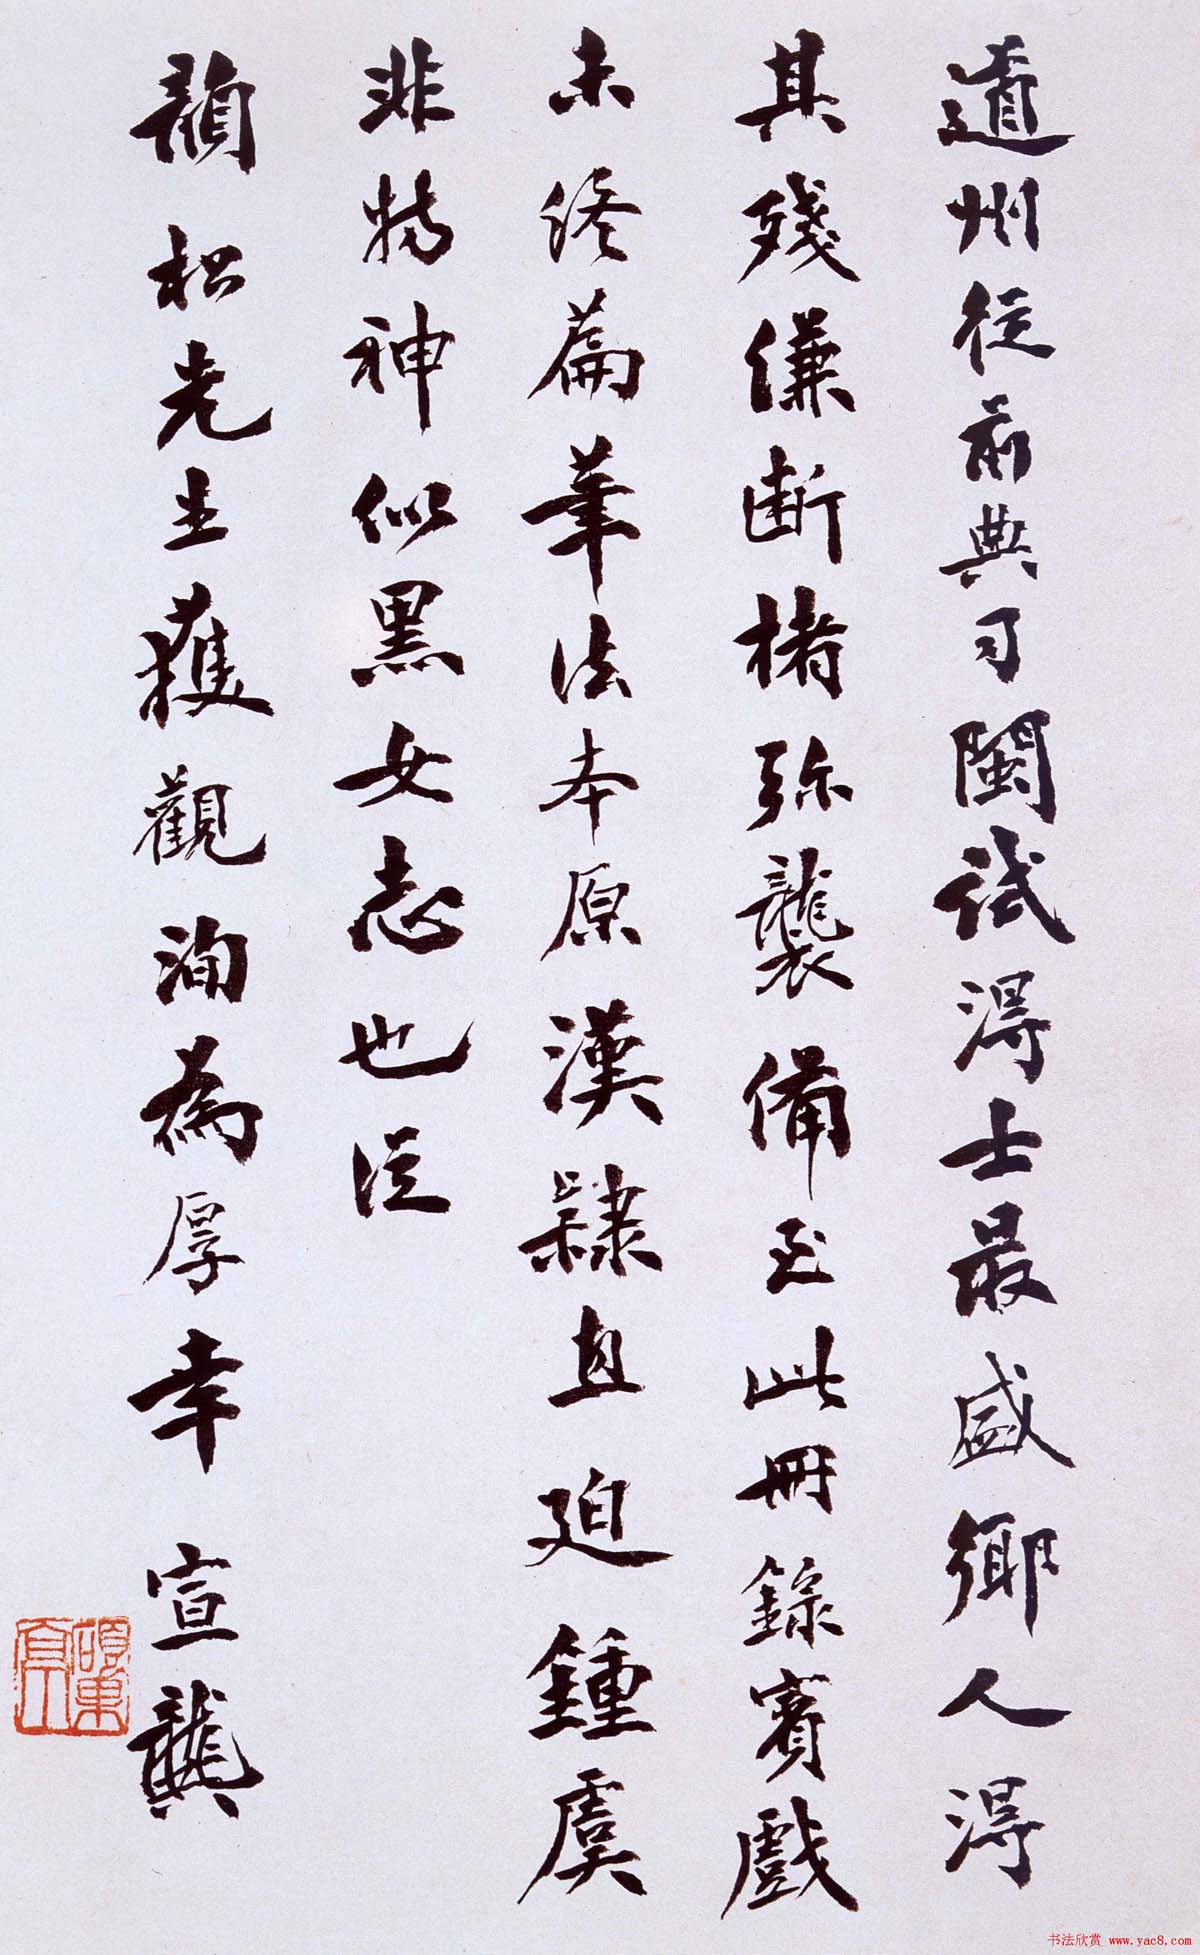 道州從前典司閩試得士最盛鄉人得
其殘縑斷楮珎襲備至此冊錄賓戲
未終篇筆法本原漢隸直迫鍾虞
非特神似黑女志也從
韻松先生獲觀洵為厚幸 宣龔
书法欣赏 www.yac8.com